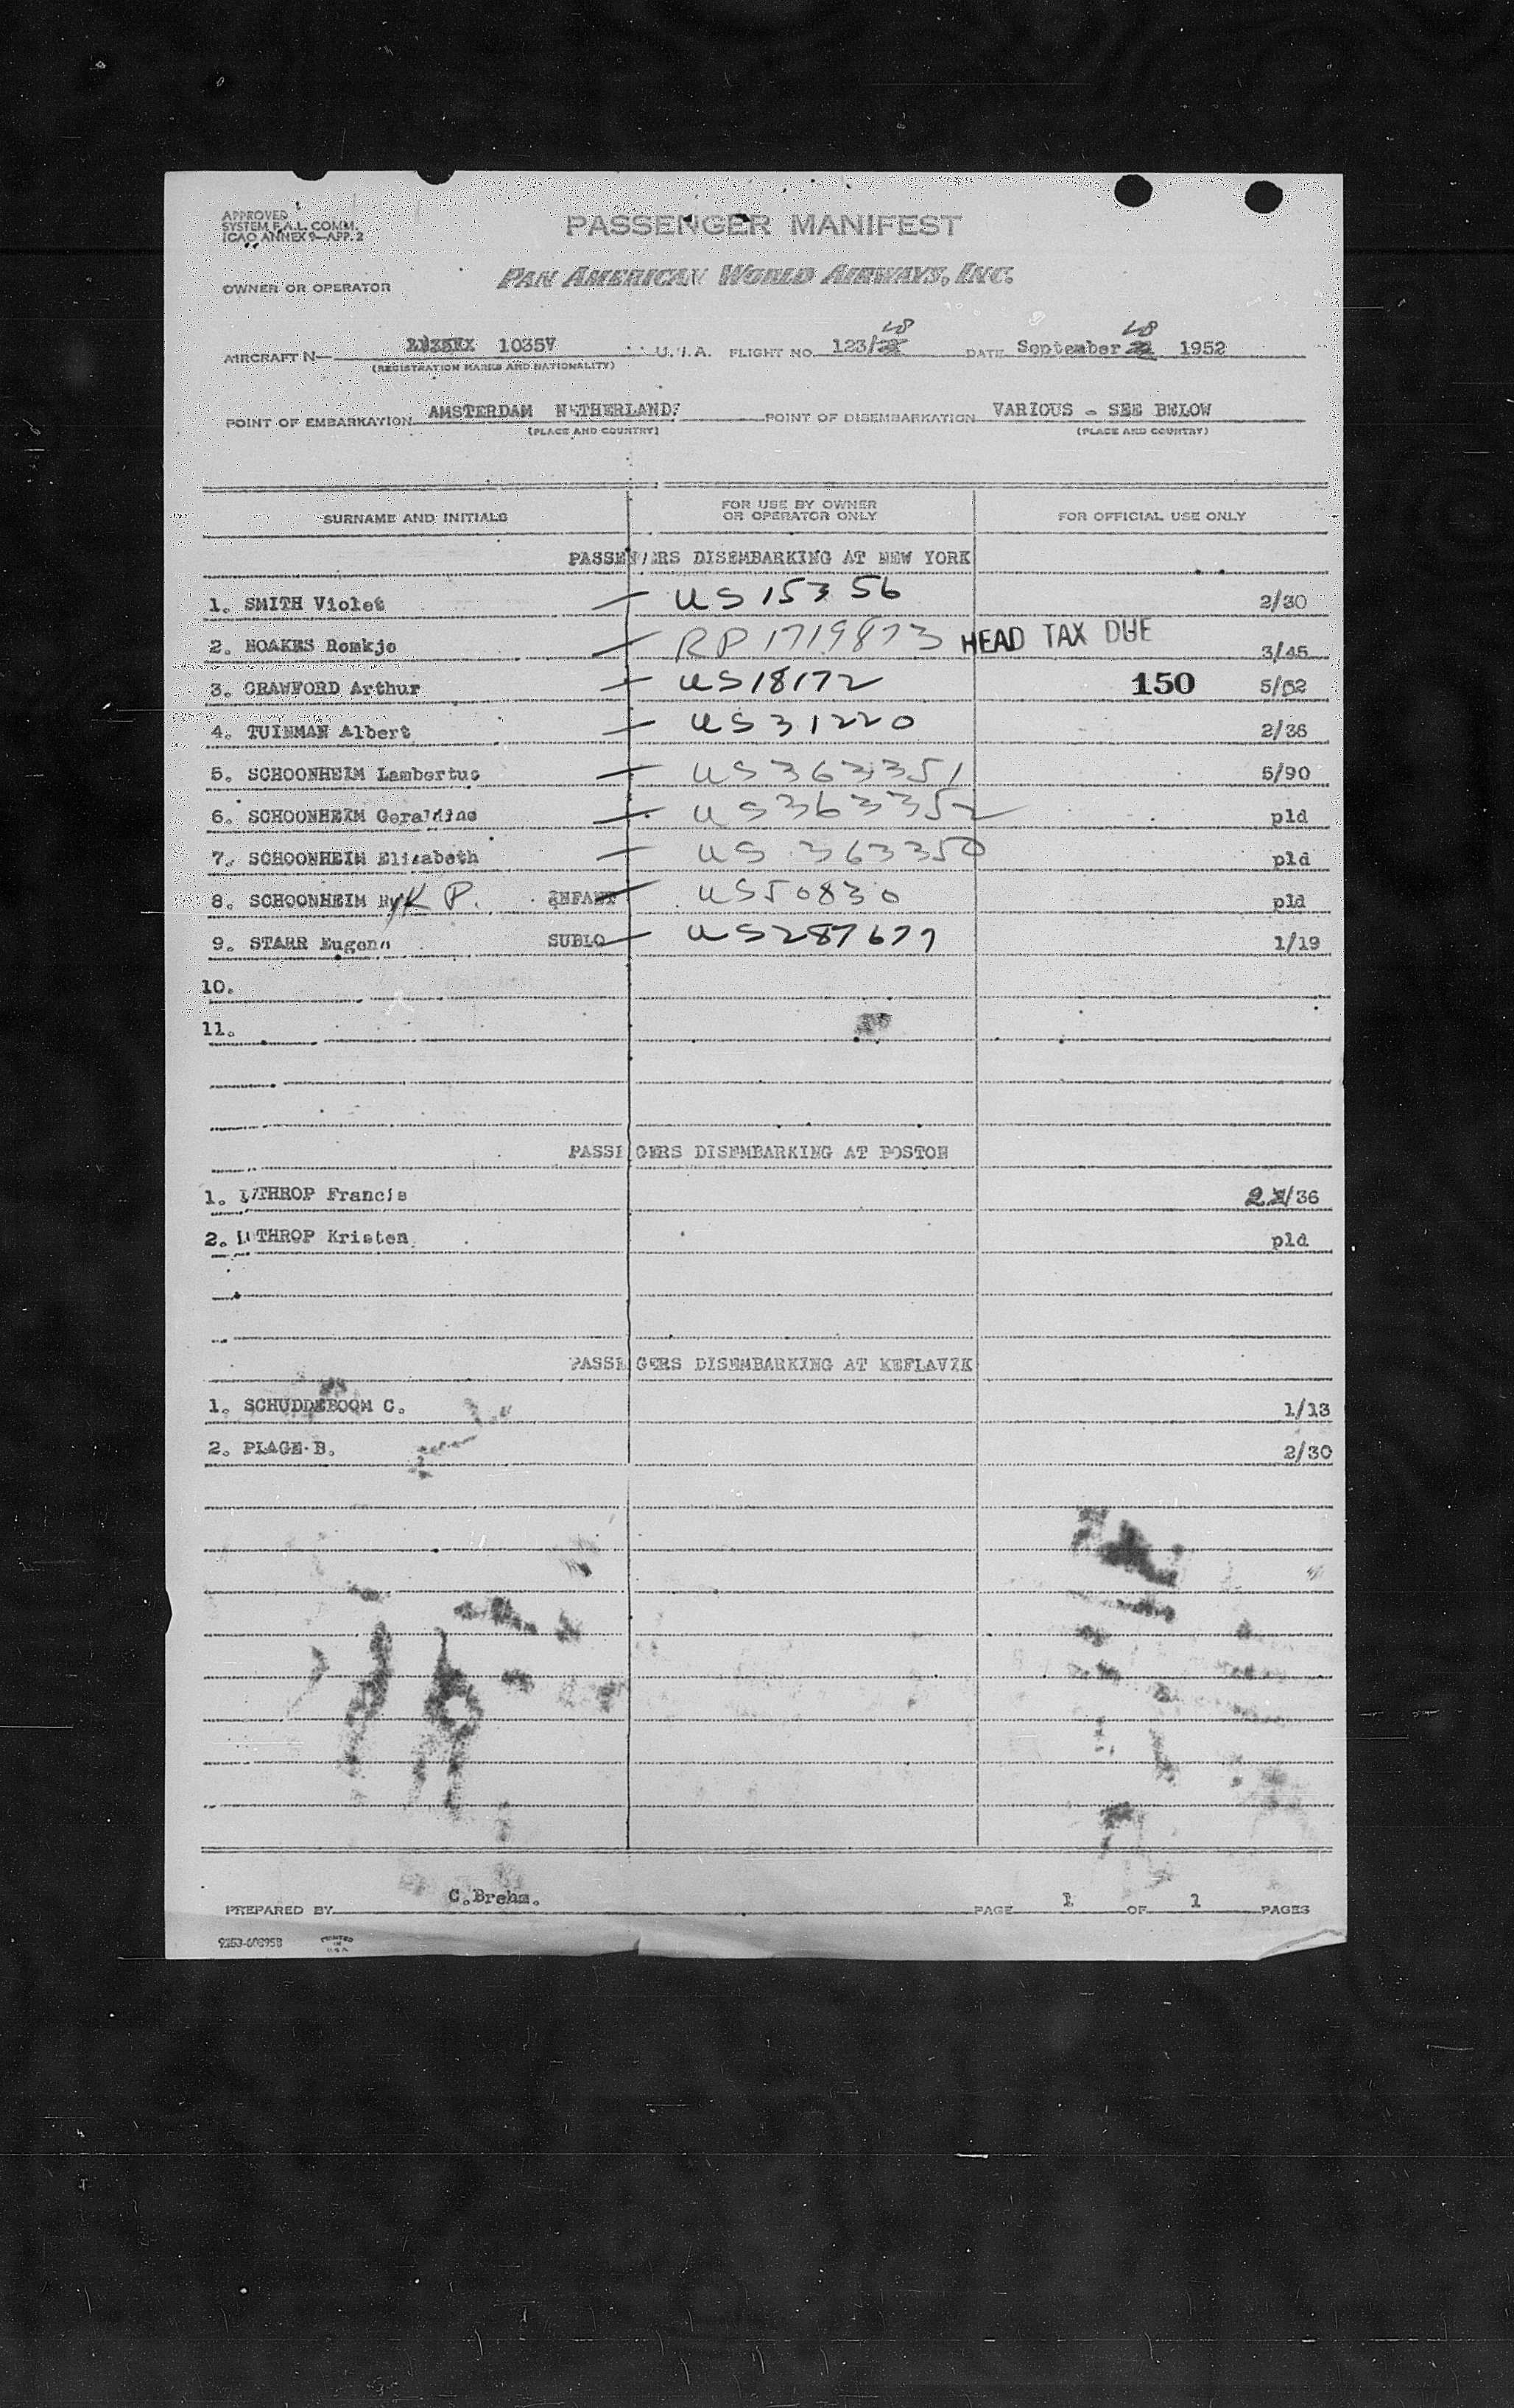 APPROVED
SYSTEM F.A.L. COMM.
ICAO ANNEX 9—APP. 2
PASSENGER MANIFEST
OWNER OR OPERATOR
PAN AMERICAN WORLD AIRWAYS, INC.
AIRCRAFT N— 1035V U.S.A. FLIGHT NO. 123/ DATE September 1952
(REGISTRATION MARKS AND NATIONALITY)
POINT OF EMBARKATION AMSTERDAM NETHERLANDS POINT OF DISEMBARKATION VARIOUS - SEE BELOW
(PLACE AND COUNTRY) (PLACE AND COUNTRY)
SURNAME AND INITIALS FOR USE BY OWNER OR OPERATOR ONLY FOR OFFICIAL USE ONLY
PASSENGERS DISEMBARKING AT NEW YORK
1. SMITH Violet US 15356 2/30
2. NOAKES Romkje RP 1719873 HEAD TAX DUE 3/45
3. CRAWFORD Arthur US 18172 150 5/52
4. TUINMAN Albert US 31220 2/36
5. SCHOONHEIM Lambertus US 363351 5/90
6. SCHOONHEIM Geraldine US 363352 pld
7. SCHOONHEIM Elizabeth US 363350 pld
8. SCHOONHEIM RyK P. INFANT US 50830 pld
9. STARR Eugene SUBLO US 287677 1/19
10.
11.
PASSENGERS DISEMBARKING AT BOSTON
1. LATHROP Francis 2/36
2. LATHROP Kristen pld
PASSENGERS DISEMBARKING AT KEFLAVIK
1. SCHUDDEBOOM C. 1/13
2. PLAGE B. 2/30
PREPARED BY C.Brehm. PAGE 1 OF 1 PAGES
PRINTED
IN
U.S.A.